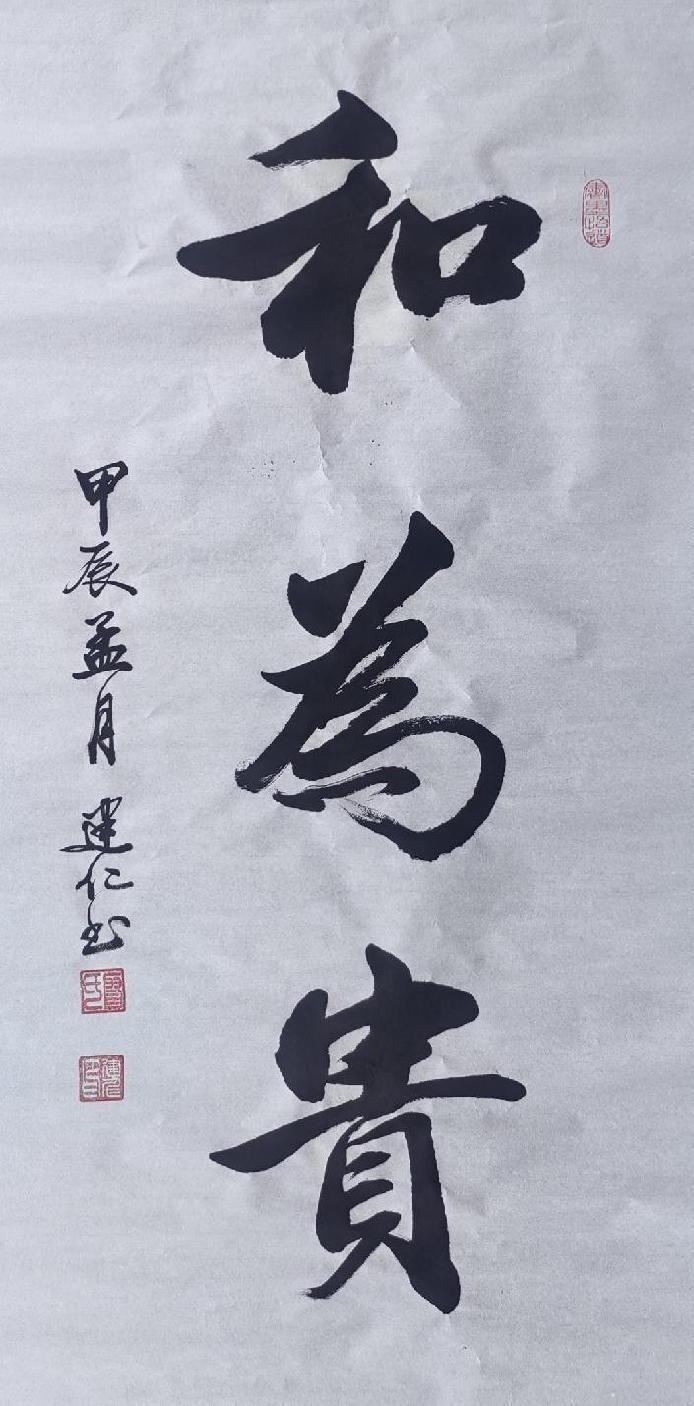 和為貴
甲辰孟月
建仁书